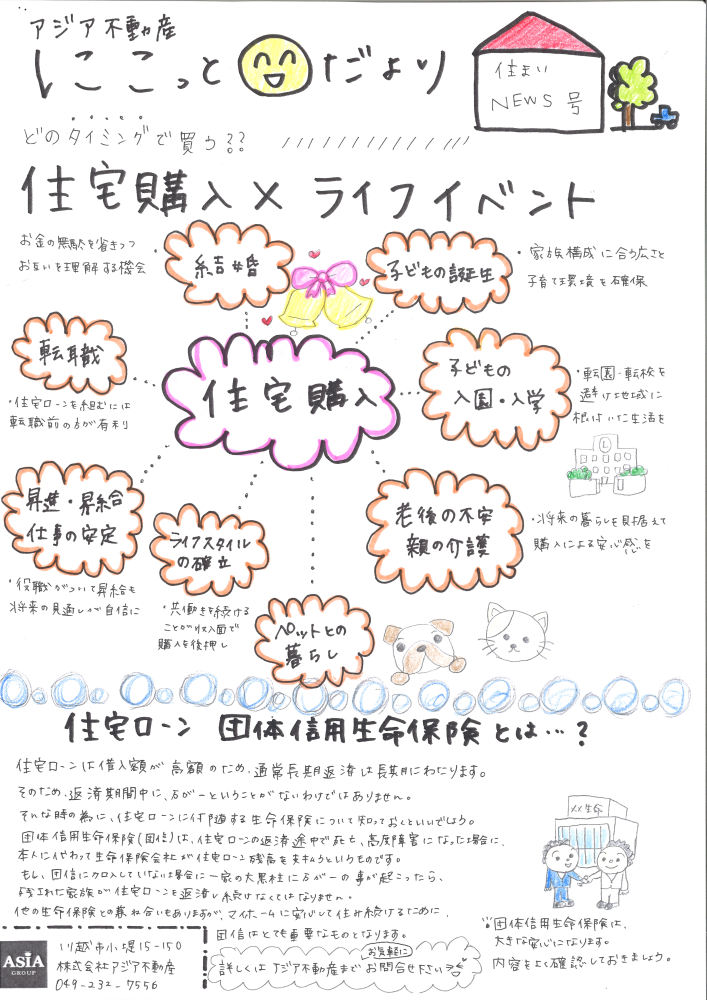 アジア不動産
にこにこっとだより
住まい
NEWS号
どのタイミングで買う??
住宅購入×ライフイベント
お金の無駄を省きつつ
お互いを理解する機会
結婚
子どもの誕生
・家族構成に合う広さと
子育て環境を確保
転職
・住宅ローンを組むには
転職前の方が有利
住宅購入
子どもの
入園・入学
・転園・転校を
避け地域に
根付いた生活を
昇進・昇給
仕事の安定
・役職がついて昇給も
将来の見通しが自信に
ライフスタイル
の確立
・共働きを続ける
ことが収入面で
購入を後押し
老後の不安
親の介護
・将来の暮らしを見据えて
購入による安心感を
ペットとの
暮らし
住宅ローン 団体信用生命保険とは…?
住宅ローンは借入額が高額のため、通常長期返済は長期にわたります。
そのため、返済期間中に、万が一ということがないわけではありません。
そんな時の為に、住宅ローンに付随する生命保険について知っておくといいでしょう。
団体信用生命保険(団信)は、住宅ローンの返済途中で死亡、高度障害になった場合に、
本人にかわって生命保険会社が住宅ローン残高を支払うというものです。
もし、団信に加入していない場合に一家の大黒柱に万が一の事が起こったら、
残された家族が住宅ローンを返済し続けなくてはなりません。
他の生命保険との兼ね合いもありますが、マイホームに安心して住み続けるために、
団信はとても重要なものとなります。
××生命
※団体信用生命保険は、
大きな安心になります。
内容をよく確認しておきましょう。
ASIA
GROUP
川越市小堤15-150
株式会社アジア不動産
049-232-7556
お気軽に
詳しくはアジア不動産までお問合せ下さい